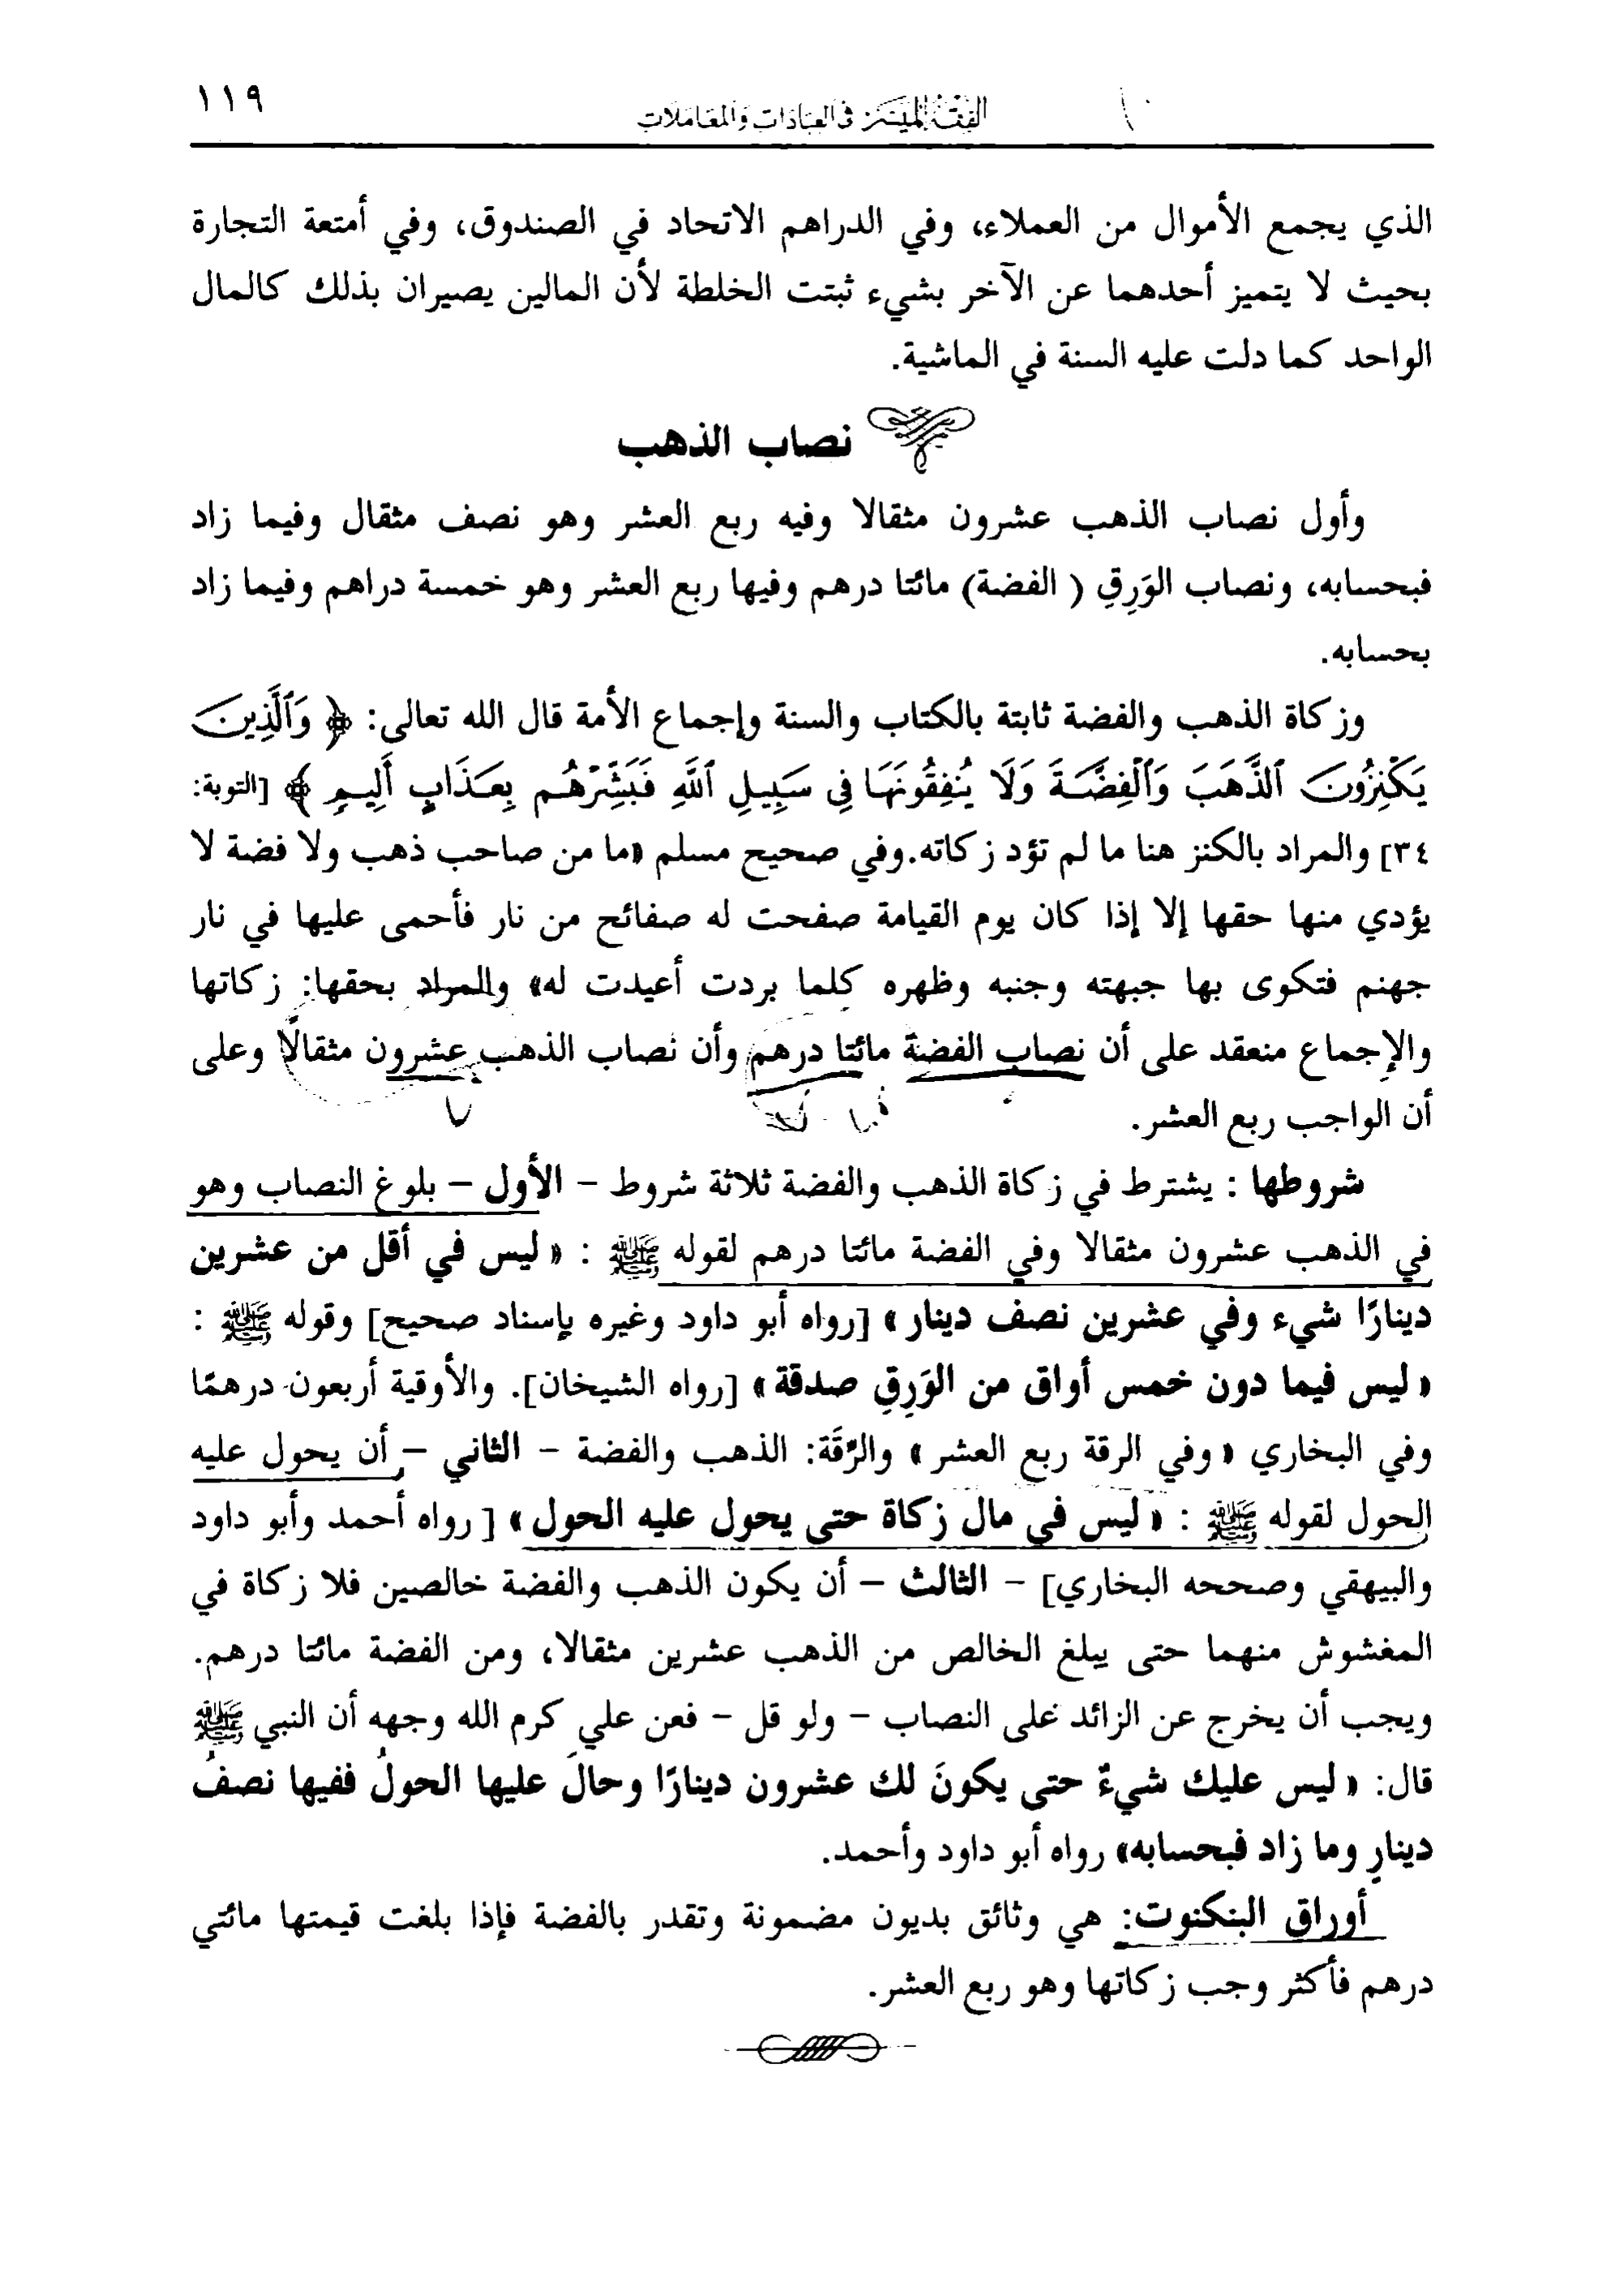 الفقه الميسر في العبادات والمعاملات ١١٩
الذي يجمع الأموال من العملاء، وفي الدراهم الاتحاد في الصندوق، وفي أمتعة التجارة
بحيث لا يتميز أحدهما عن الآخر بشيء ثبتت الخلطة لأن المالين يصيران بذلك كالمال
الواحد كما دلت عليه السنة في الماشية.
نصاب الذهب
وأول نصاب الذهب عشرون مثقالا وفيه ربع العشر وهو نصف مثقال وفيما زاد
فبحسابه، ونصاب الوَرِقِ ( الفضة) مائتا درهم وفيها ربع العشر وهو خمسة دراهم وفيما زاد
بحسابه.
وزكاة الذهب والفضة ثابتة بالكتاب والسنة وإجماع الأمة قال الله تعالى: ﴿ وَٱلَّذِينَ
يَكْنِزُونَ ٱلذَّهَبَ وَٱلْفِضَّةَ وَلَا يُنفِقُونَهَا فِى سَبِيلِ ٱللَّهِ فَبَشِّرْهُم بِعَذَابٍ أَلِيمٍ ﴾ [التوبة:
٣٤] والمراد بالكنز هنا ما لم تؤد زكاته.وفي صحيح مسلم «ما من صاحب ذهب ولا فضة لا
يؤدي منها حقها إلا إذا كان يوم القيامة صفحت له صفائح من نار فأحمى عليها في نار
جهنم فتكوى بها جبهته وجنبه وظهره كلما بردت أعيدت له» والمراد بحقها: زكاتها
والإجماع منعقد على أن نصاب الفضة مائتا درهم وأن نصاب الذهب عشرون مثقالًا وعلى
أن الواجب ربع العشر.
شروطها : يشترط في زكاة الذهب والفضة ثلاثة شروط – الأول – بلوغ النصاب وهو
في الذهب عشرون مثقالا وفي الفضة مائتا درهم لقوله ﷺ : « ليس في أقل من عشرين
دينارًا شيء وفي عشرين نصف دينار » [رواه أبو داود وغيره بإسناد صحيح] وقوله ﷺ :
« ليس فيما دون خمس أواق من الوَرِقِ صدقة » [رواه الشيخان]. والأوقية أربعون درهمًا
وفي البخاري « وفي الرقة ربع العشر » والرِّقَة: الذهب والفضة – الثاني – أن يحول عليه
الحول لقوله ﷺ : « ليس في مال زكاة حتى يحول عليه الحول » [ رواه أحمد وأبو داود
والبيهقي وصححه البخاري] – الثالث – أن يكون الذهب والفضة خالصين فلا زكاة في
المغشوش منهما حتى يبلغ الخالص من الذهب عشرين مثقالا، ومن الفضة مائتا درهم.
ويجب أن يخرج عن الزائد على النصاب – ولو قل – فعن علي كرم الله وجهه أن النبي ﷺ
قال: « ليس عليك شيءٌ حتى يكونَ لك عشرون دينارًا وحالَ عليها الحولُ ففيها نصفُ
دينارٍ وما زاد فبحسابه» رواه أبو داود وأحمد.
أوراق البنكنوت: هي وثائق بديون مضمونة وتقدر بالفضة فإذا بلغت قيمتها مائتي
درهم فأكثر وجب زكاتها وهو ربع العشر.